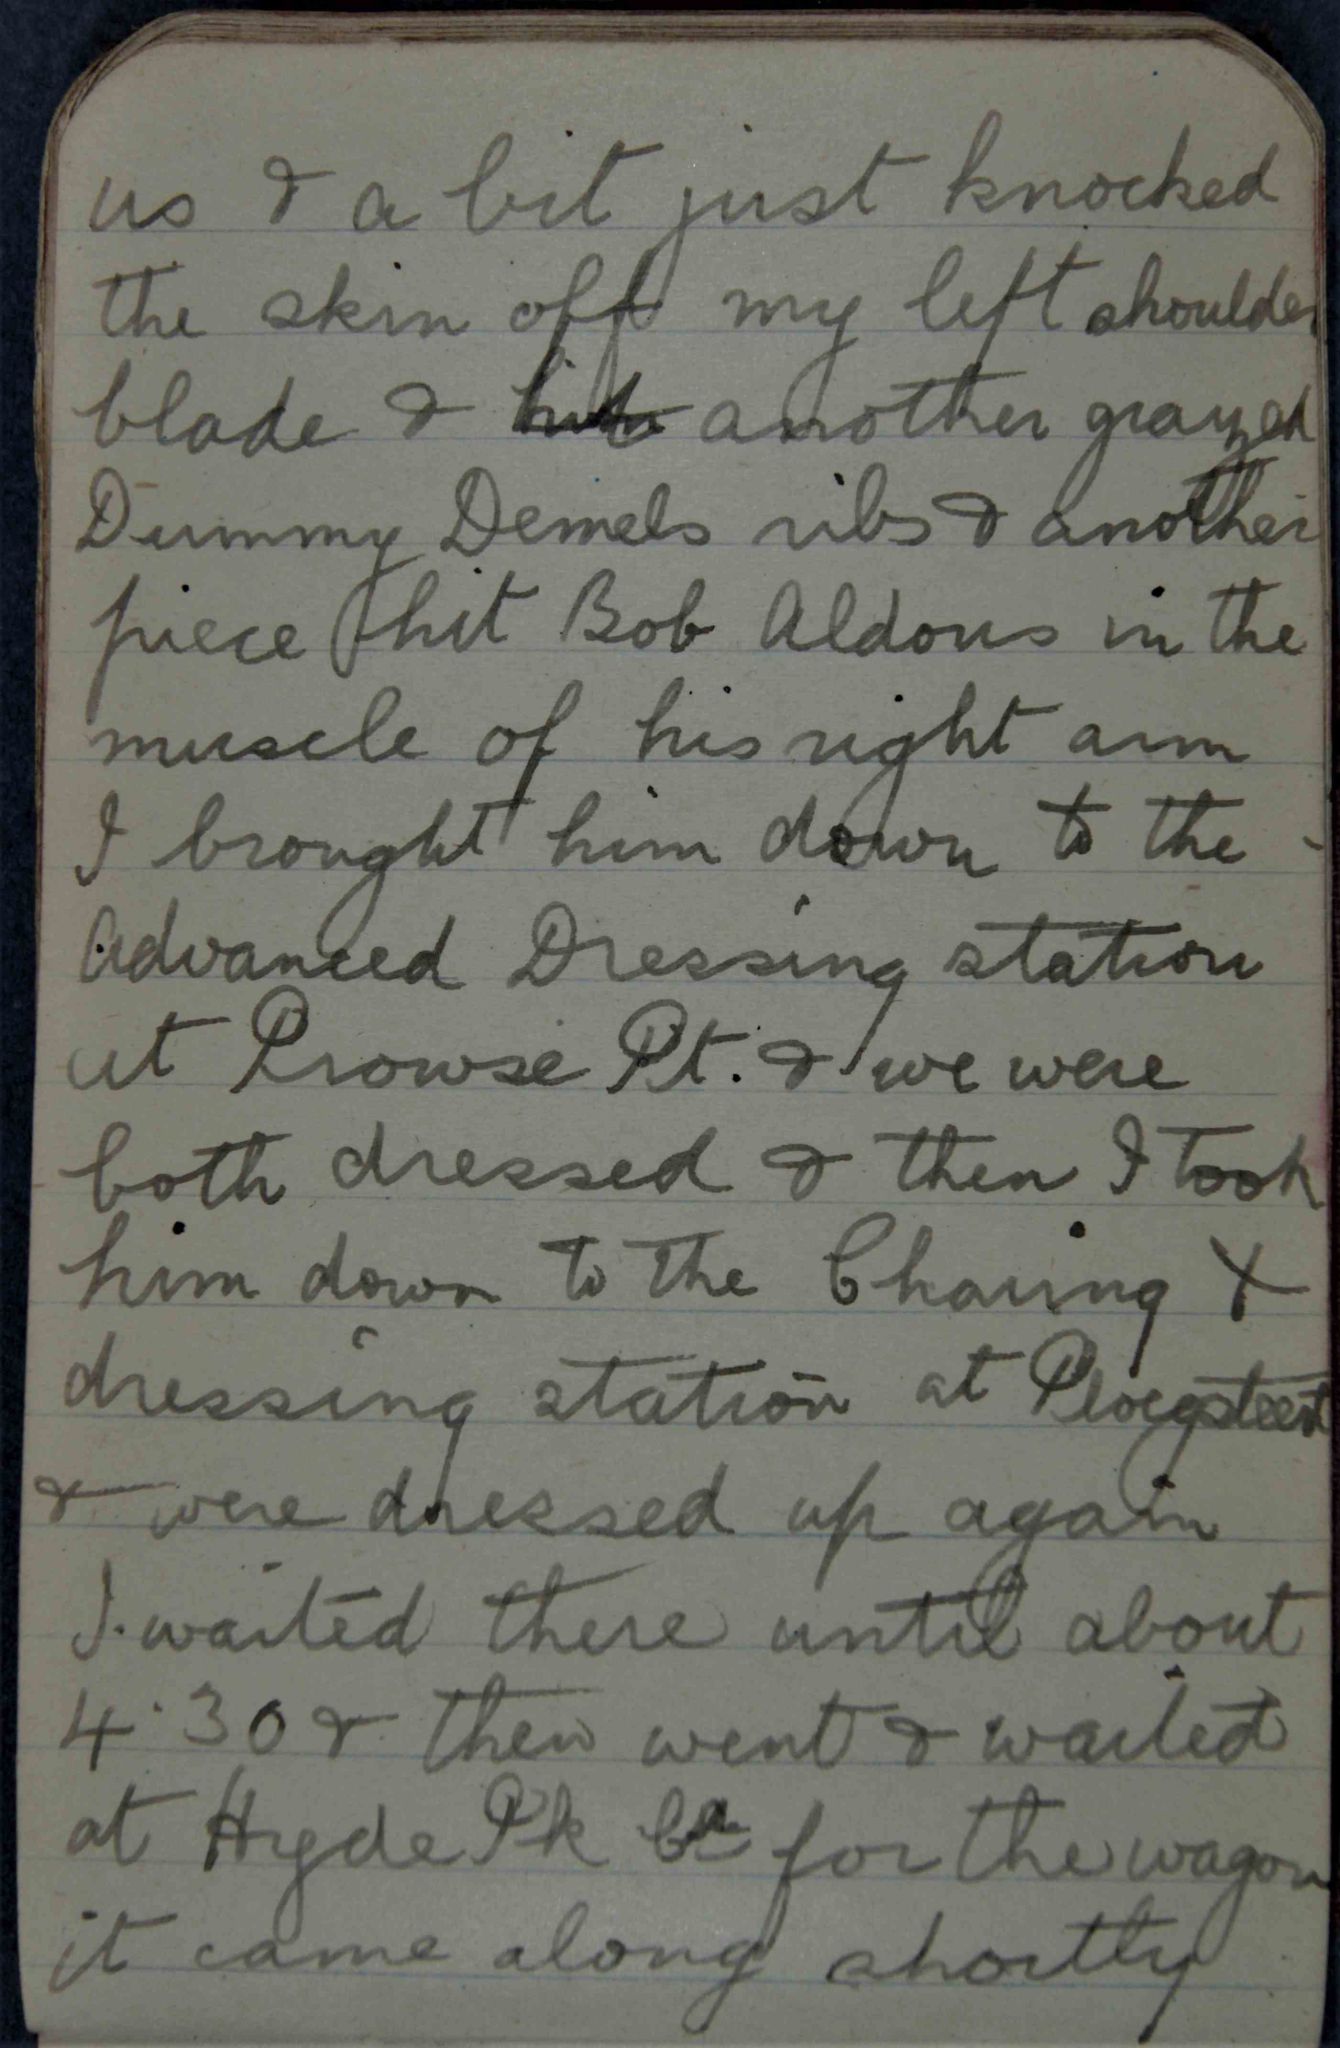 us & a bit just knocked
the skin off my left shoulder
blade & another grazed
Dummy Demels ribs & another
piece hit Bob Aldous in the
muscle of his right arm
I brought him down to the
Advanced Dressing station
at Prowse Pt. & we were
both dressed & then I took
him down to the Charing X
dressing station at Ploegsteert
& were dressed up again
I waited there until about
4.30 & then went & waited
at Hyde Pk for the wagon
it came along shortly